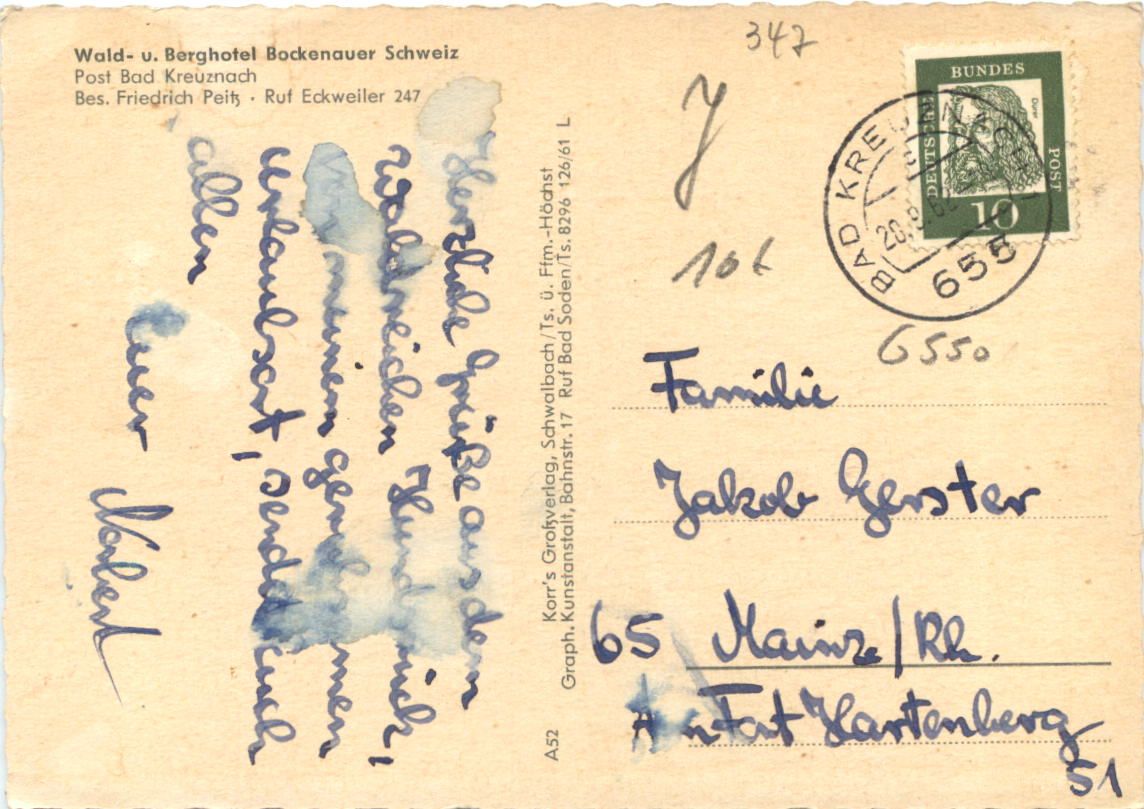 Wald- u. Berghotel Bockenauer Schweiz
Post Bad Kreuznach
Bes. Friedrich Peitz · Ruf Eckweiler 247
Herzliche Grüße aus dem
waldreichen Hunsrück,
meinen genehmen
Urlaubsort, sendet euch
allen
Euer Norbert
Korr's Großverlag, Schwalbach/Ts. ü. Ffm.-Höchst
Graph. Kunstanstalt, Bahnstr. 17 Ruf Bad Soden/Ts. 8296 126/61 L
A52
347
J
6550
DEUTSCHE BUNDES POST
Dürer
10
BAD KREUZNACH
655
Familie
Jakob Gerster
65 Mainz/Rh.
Am Fort Hartenberg
51